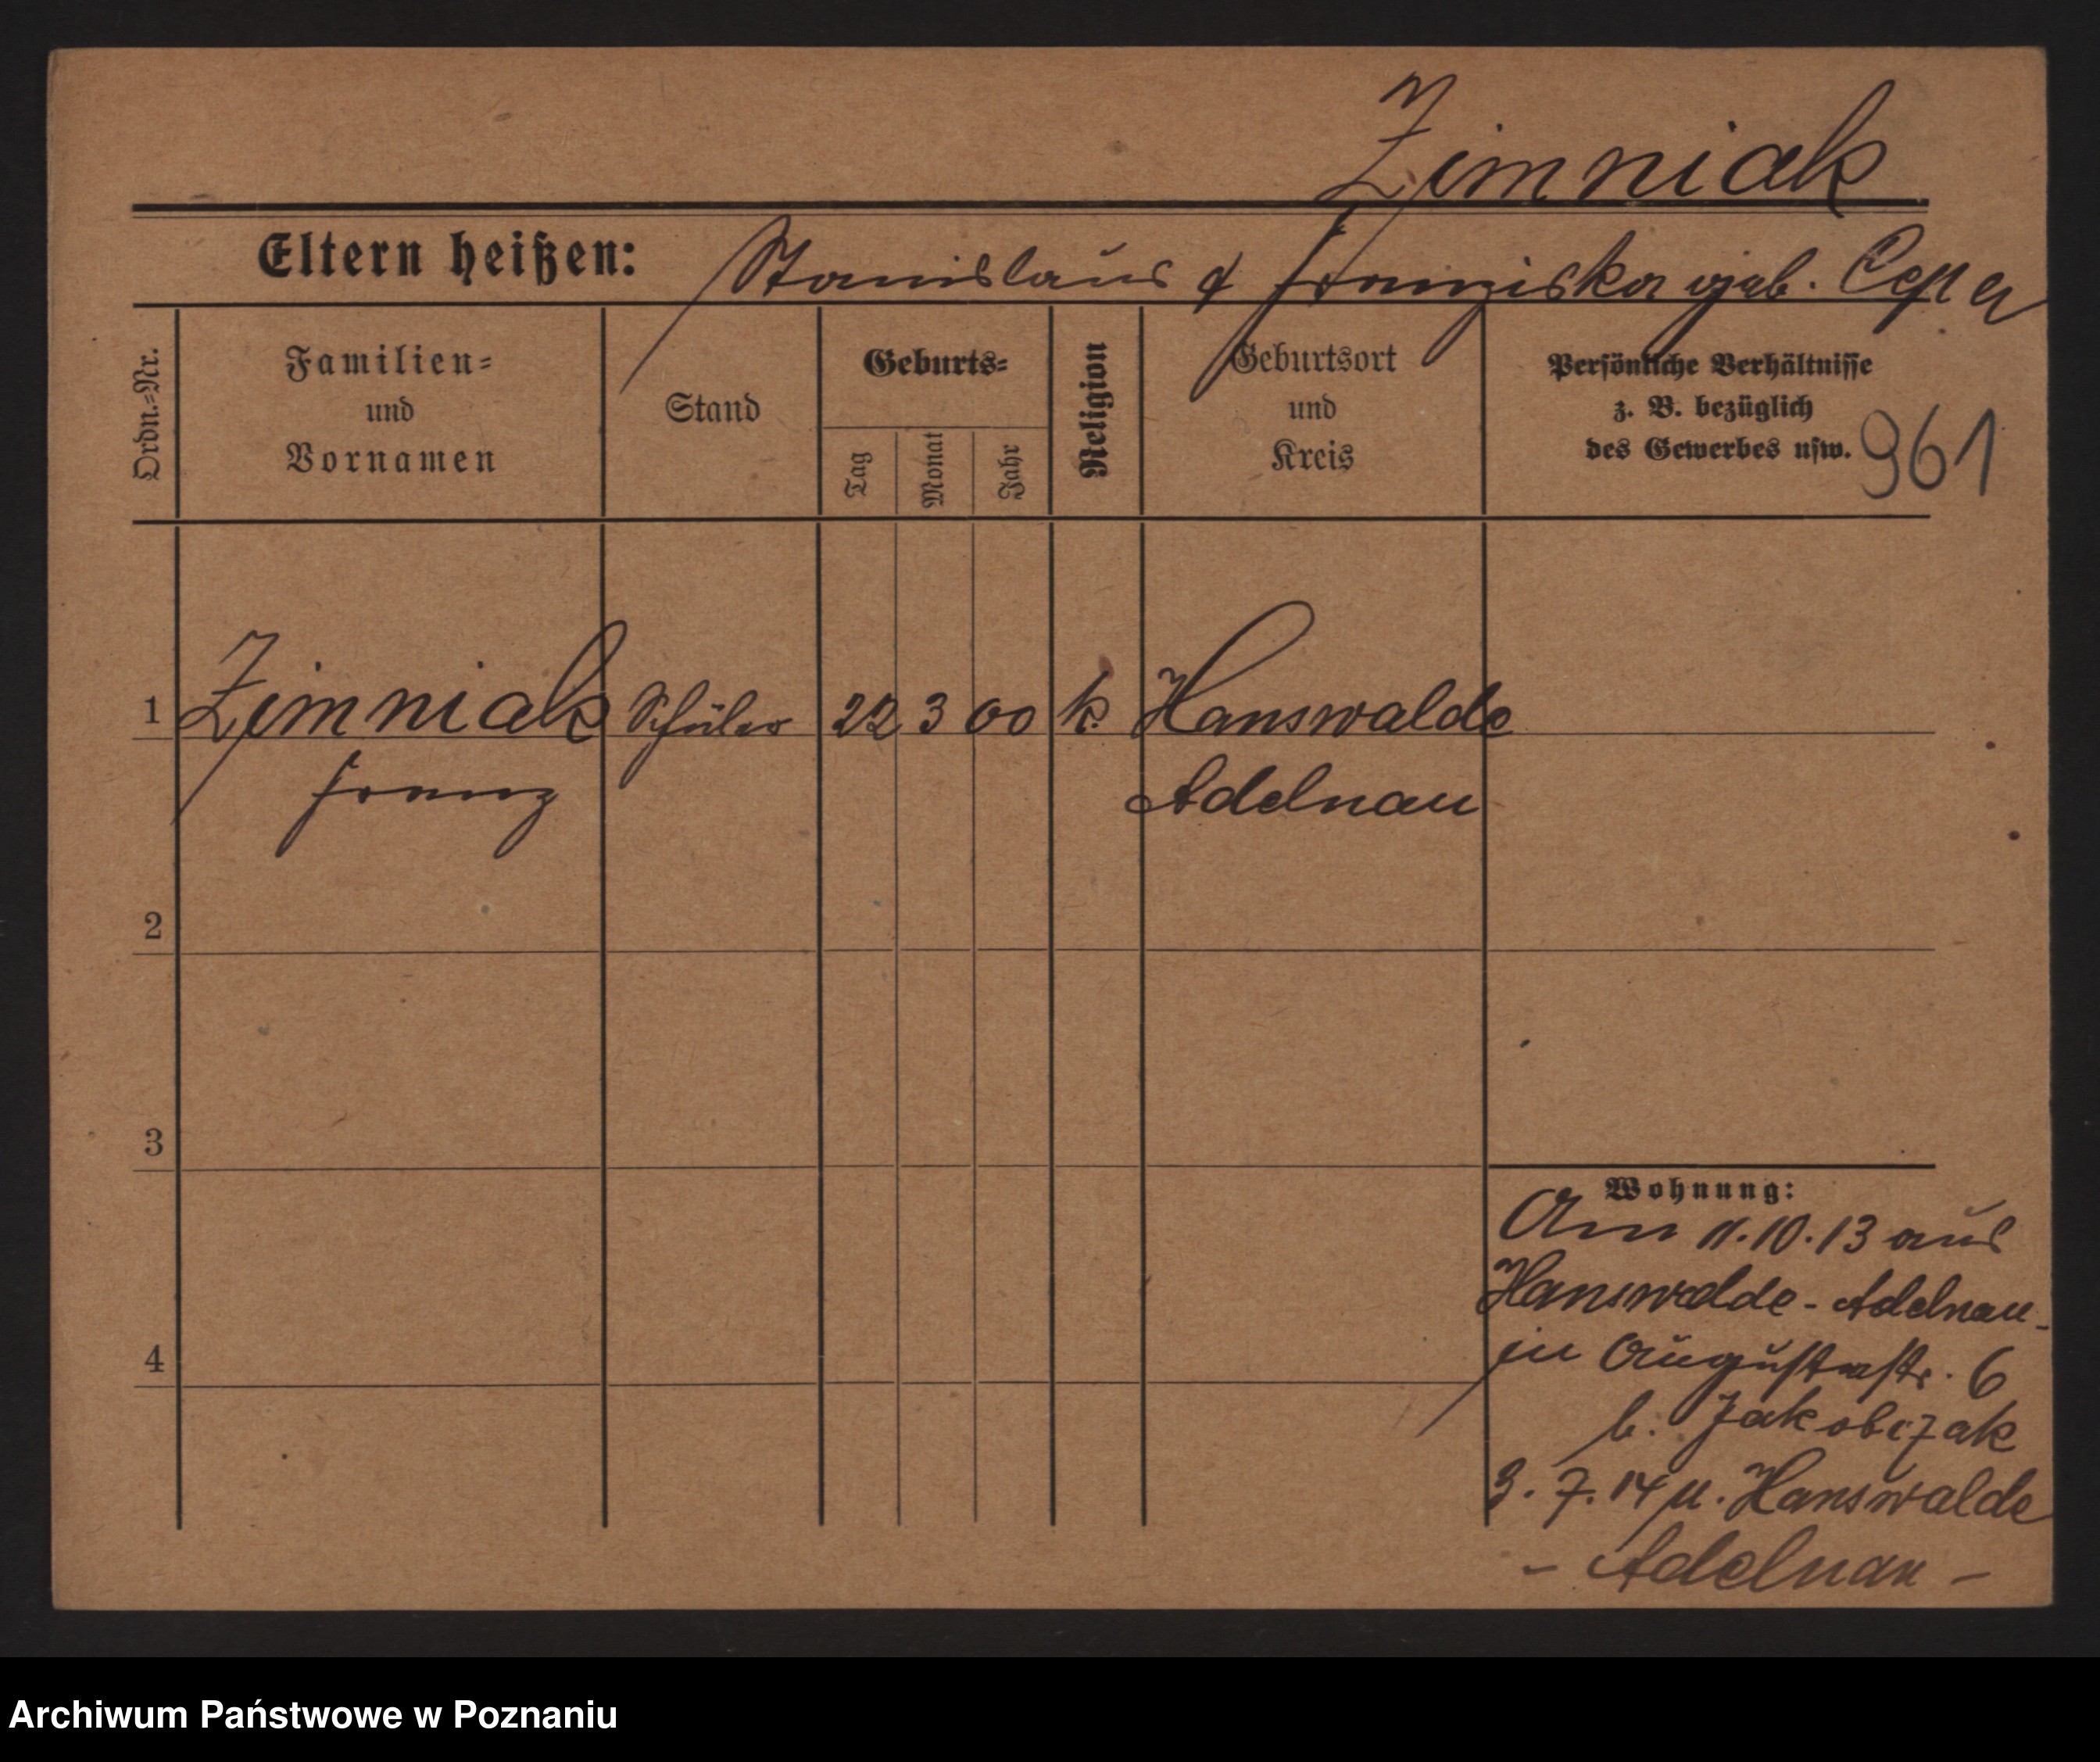 Zimniak
Eltern heißen: Stanislaus & Franziska geb. Cepa
Ordn.-Nr.
Familien-
und
Vornamen
Stand
Geburts-
Tag
Monat
Jahr
Religion
Geburtsort
und
Kreis
Persönliche Verhältnisse
z. B. bezüglich
des Gewerbes usw.
961
1 Zimniak Schüler 22 3 00 k. Hanswalde
Franz Adelnau
2
3
4
Wohnung:
Am 11.10.13 aus
Hanswalde - Adelnau -
in Augustastr. 6
b. Jakobczak
3. 7. 14 n. Hanswalde
- Adelnau -
Archiwum Państwowe w Poznaniu